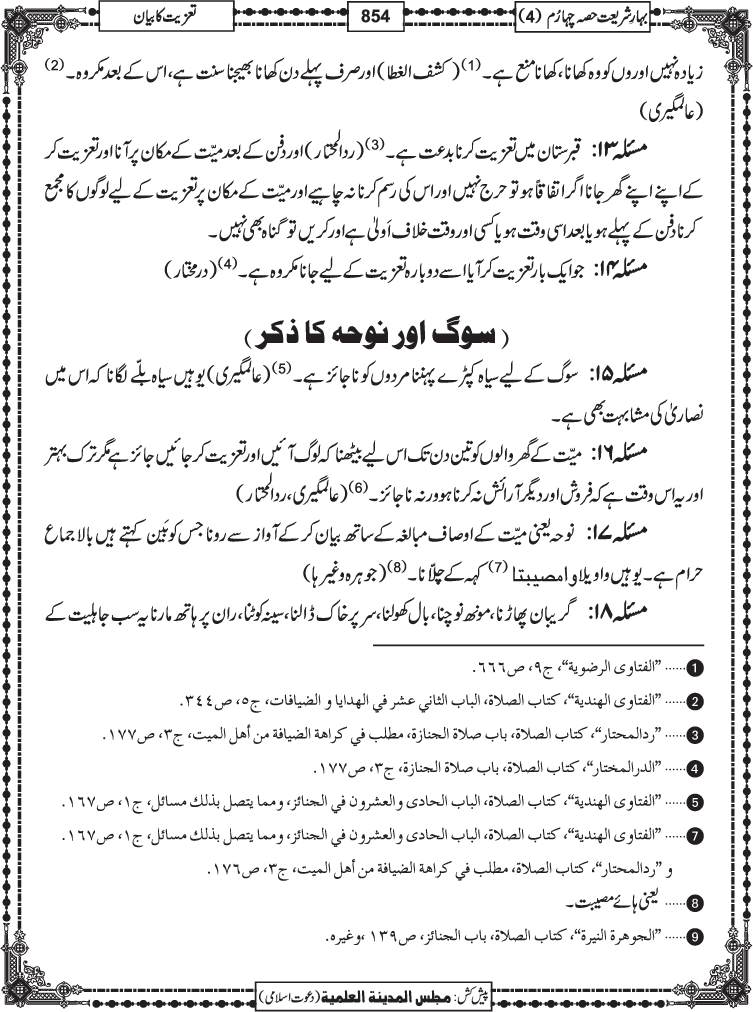 بہارِ شریعت حصہ چہارم (4)
854
تعزیت کا بیان
زیادہ نہیں اوروں کو وہ کھانا، کھانا منع ہے۔ (1) (کشف الغطا) اور صرف پہلے دن کھانا بھیجنا سنت ہے، اس کے بعد مکروہ۔ (2)
(عالمگیری)
مسئلہ ۱۳: قبرستان میں تعزیت کرنا بدعت ہے۔ (3) (ردالمحتار) اور دفن کے بعد میّت کے مکان پر آنا اور تعزیت کر
کے اپنے اپنے گھر جانا اگر اتفاقاً ہو تو حرج نہیں اور اس کی رسم کرنا نہ چاہیے اور میّت کے مکان پر تعزیت کے لیے لوگوں کا مجمع
کرنا دفن کے پہلے ہو یا بعد اسی وقت ہو یا کسی اور وقت خلاف اَولیٰ ہے اور کریں تو گناہ بھی نہیں۔
مسئلہ ۱۴: جو ایک بار تعزیت کر آیا اسے دوبارہ تعزیت کے لیے جانا مکروہ ہے۔ (4) (درمختار)
(سوگ اور نوحہ کا ذکر)
مسئلہ ۱۵: سوگ کے لیے سیاہ کپڑے پہننا مردوں کو ناجائز ہے۔ (5) (عالمگیری) یوہیں سیاہ بلّے لگانا کہ اس میں
نصاریٰ کی مشابہت بھی ہے۔
مسئلہ ۱۶: میّت کے گھر والوں کو تین دن تک اس لیے بیٹھنا کہ لوگ آئیں اور تعزیت کر جائیں جائز ہے مگر ترک بہتر
اور یہ اس وقت ہے کہ فروش اور دیگر آرائش نہ کرنا ہو ورنہ ناجائز۔ (6) (عالمگیری، ردالمحتار)
مسئلہ ۱۷: نوحہ یعنی میّت کے اوصاف مبالغہ کے ساتھ بیان کر کے آواز سے رونا جس کو بَین کہتے ہیں بالاجماع
حرام ہے۔ یوہیں واویلا وا مصیبتا (7) کہہ کے چلّانا۔ (8) (جوہرہ وغیرہا)
مسئلہ ۱۸: گریبان پھاڑنا، مونھ نوچنا، بال کھولنا، سر پر خاک ڈالنا، سینہ کوٹنا، ران پر ہاتھ مارنا یہ سب جاہلیت کے
1 ...... "الفتاوی الرضویة"، ج۹، ص۶۶۶.
2 ...... "الفتاوی الهندیة"، کتاب الصلاة، الباب الثاني عشر في الهدایا و الضیافات، ج۵، ص۳۴۴.
3 ...... "ردالمحتار"، کتاب الصلاة، باب صلاة الجنازة، مطلب في کراهة الضیافة من أهل المیت، ج۳، ص۱۷۷.
4 ...... "الدرالمختار"، کتاب الصلاة، باب صلاة الجنازة، ج۳، ص۱۷۷.
5 ...... "الفتاوی الهندیة"، کتاب الصلاة، الباب الحادی والعشرون في الجنائز، ومما یتصل بذلك مسائل، ج۱، ص۱۶۷.
7 ...... "الفتاوی الهندیة"، کتاب الصلاة، الباب الحادی والعشرون في الجنائز، ومما یتصل بذلك مسائل، ج۱، ص۱۶۷.
و "ردالمحتار"، کتاب الصلاة، مطلب في کراهة الضیافة من أهل المیت، ج۳، ص۱۷۶.
8 ...... یعنی ہائے مصیبت۔
9 ...... "الجوهرة النیرة"، کتاب الصلاة، باب الجنائز، ص۱۳۹ ،وغیره.
پیش کش: مجلس المدینة العلمیة (دعوتِ اسلامی)